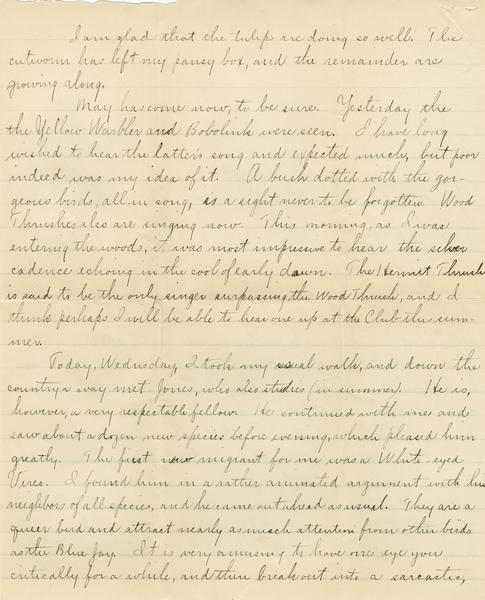 I am glad that the tulip are doing so well. The
cutworm has left my pansy box, and the remainder are
growing along.
May has come now, to be sure. Yesterday the
the Yellow Warbler and Bobolink were seen. I have long
wished to hear the latter's song and expected much, but poor
indeed was my idea of it. A bush dotted with the gor-
geous birds, all in song, is a sight never to be forgotten. Wood
Thrushes also are singing now. This morning, as I was
entering the woods, it was most impressive to hear the silver
cadence echoing in the cool of early dawn. The Hermit Thrush
is said to be the only singer surpassing the Wood Thrush, and I
think perhaps I will be able to hear one up at the Club this sum-
mer.
Today, Wednesday, I took my usual walk, and down the
country a way met Jones, who also studies (in summer). He is,
however, a very respectable fellow. He continued with me and
saw about a dozen new species before evening, which pleased him
greatly. The first new migrant for me was a White-eyed
Vireo. I found him in a rather animated argument with his
neighbors of all species, and he came out ahead as usual. They are a
queer bird and attract nearly as much attention from other birds
as the Blue Jay. It is very amusing to have one eye you
critically for a while, and then break out into a sarcastic,